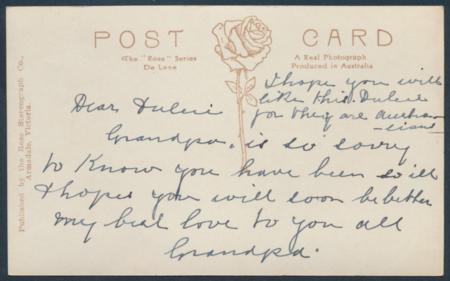 POST CARD
The "Rose" Series
De Luxe
A Real Photograph
Produced in Australia
Published by the Rose Stereograph Co.,
Armadale, Victoria.
I hope you will
like this Dulcie
for they are Austra
-lians
Dear Dulcie
Grandpa is so sorry
to Know you have been so ill
I hope you will soon be better
My best love to you all
Grandpa.